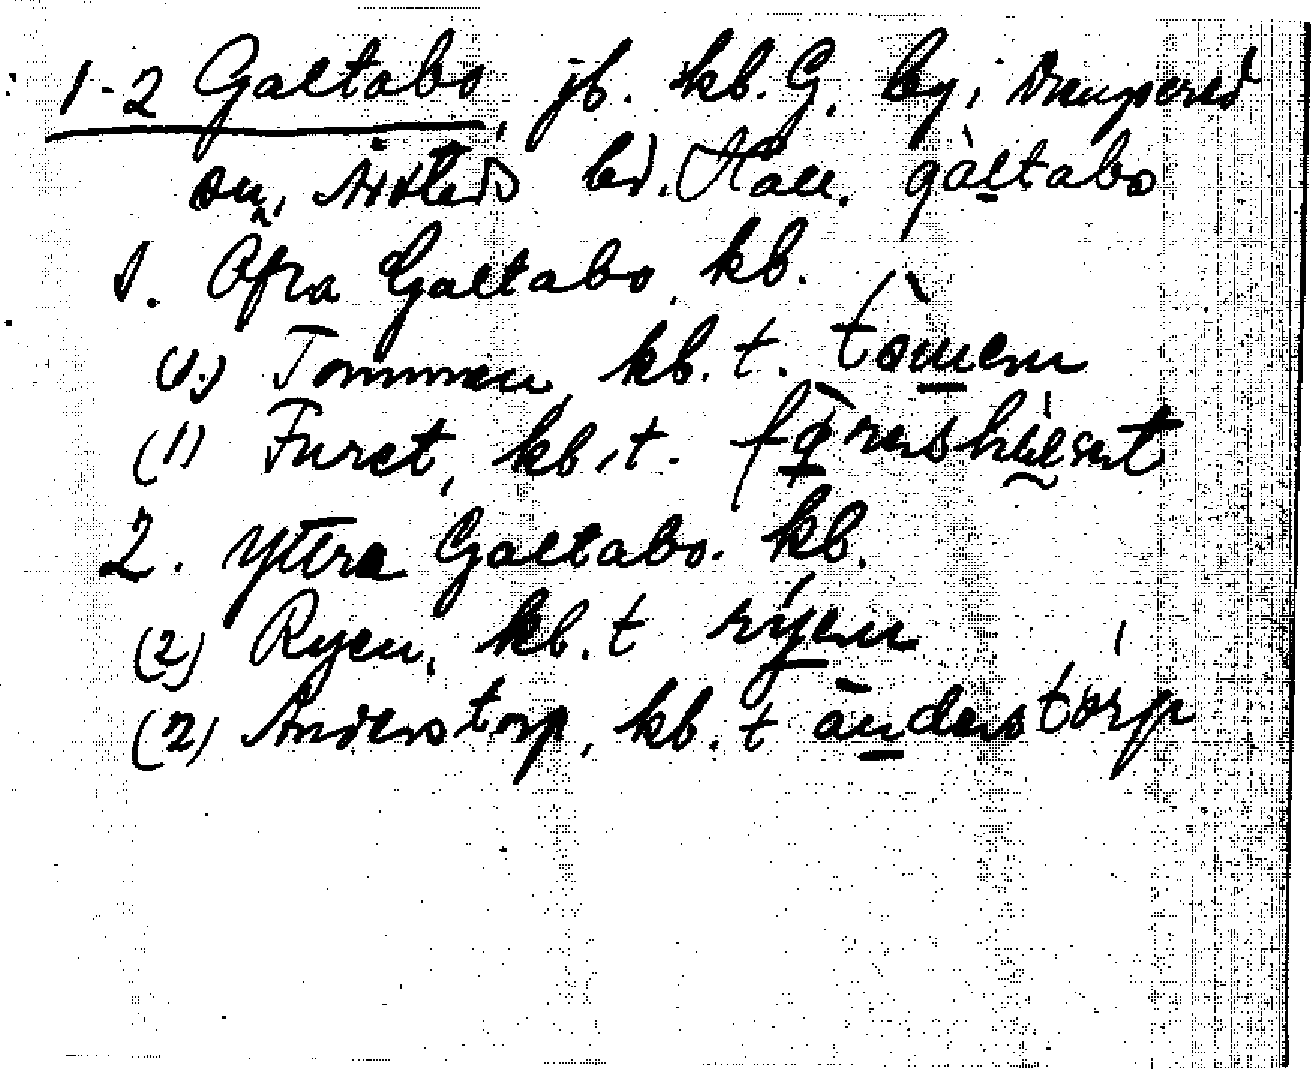 1-2 Galtabo, jb. kb. G. by i Drängsered
sn, Årstads hd. Hall. gàltabo
1. Öfra Galtabo kb.
(1.) Tommen, kb. t. tòmen
(1) Furet, kb. t.
2. Yttra Galtabo. kb.
(2) Ryen, kb. t rýen
(2) Anderstorp, kb. t ànderstórp